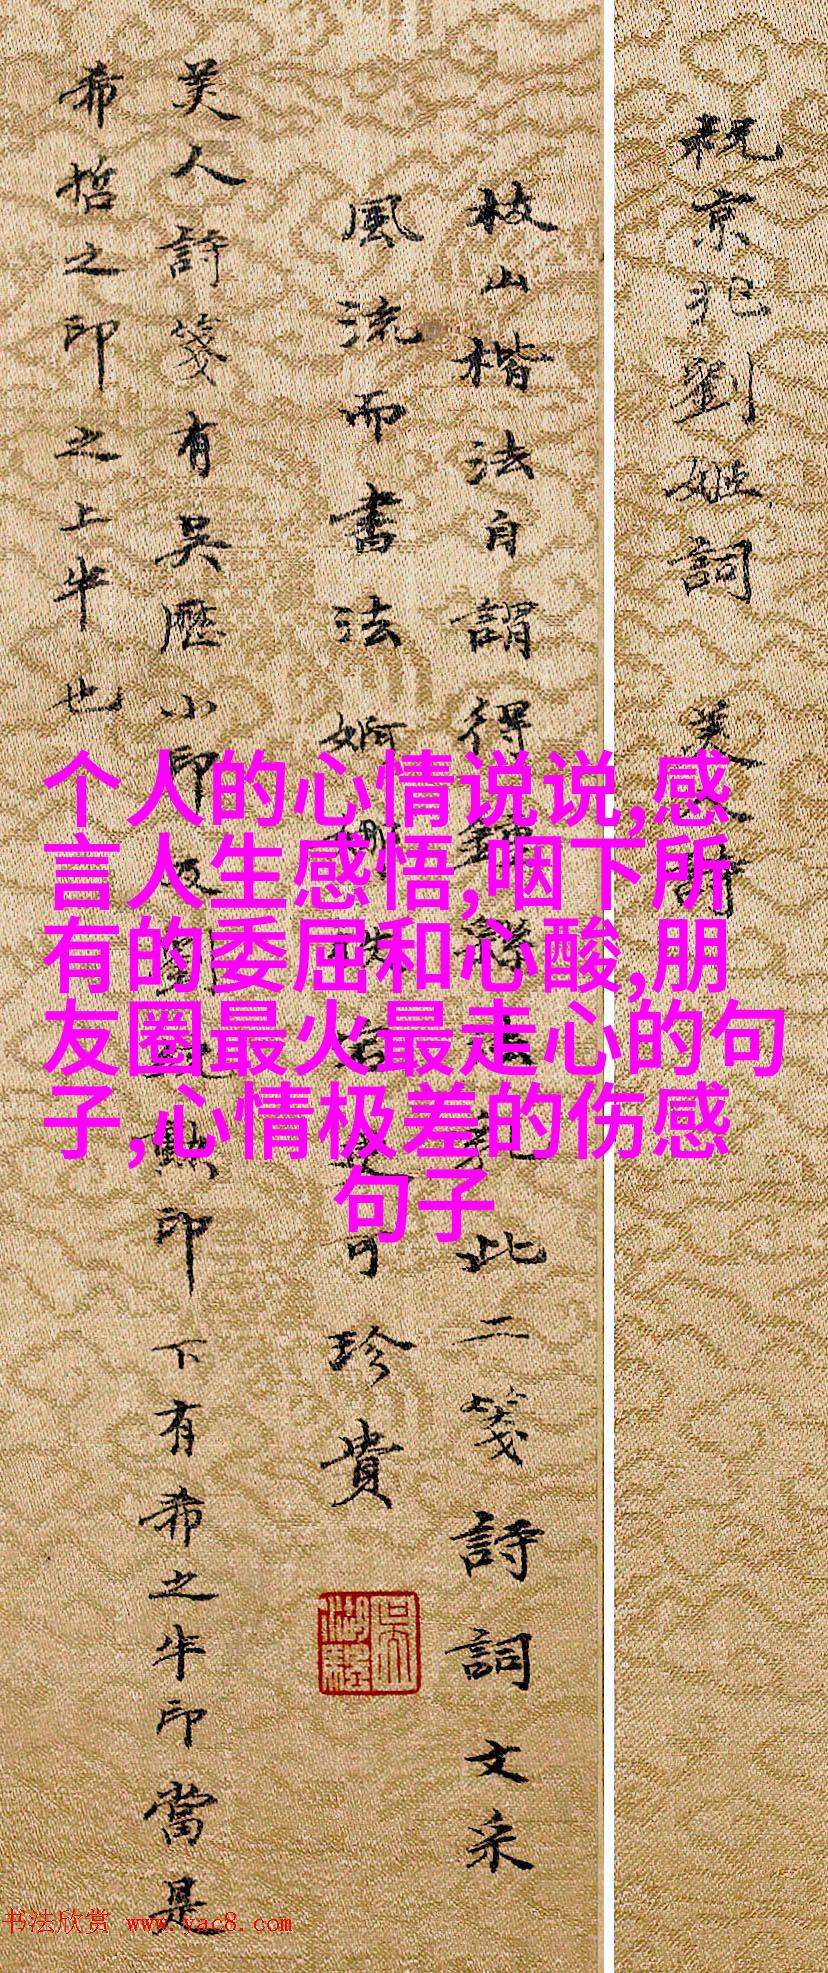 祝京兆劉姬詞　美人詩
枝山楷法自謂得鍾繇 此二箋詩詞文采
風流而書法婀娜 可珍貴
美人詩箋有吳歷小印及 印下有希之半印當是
希哲之印之上半也
个人的心情说说,感
言人生感悟,咽下所
有的委屈和心酸,朋
友圈最火最走心的句
子,心情极差的伤感
句子
吳湖
书法欣赏 www.yac8.com